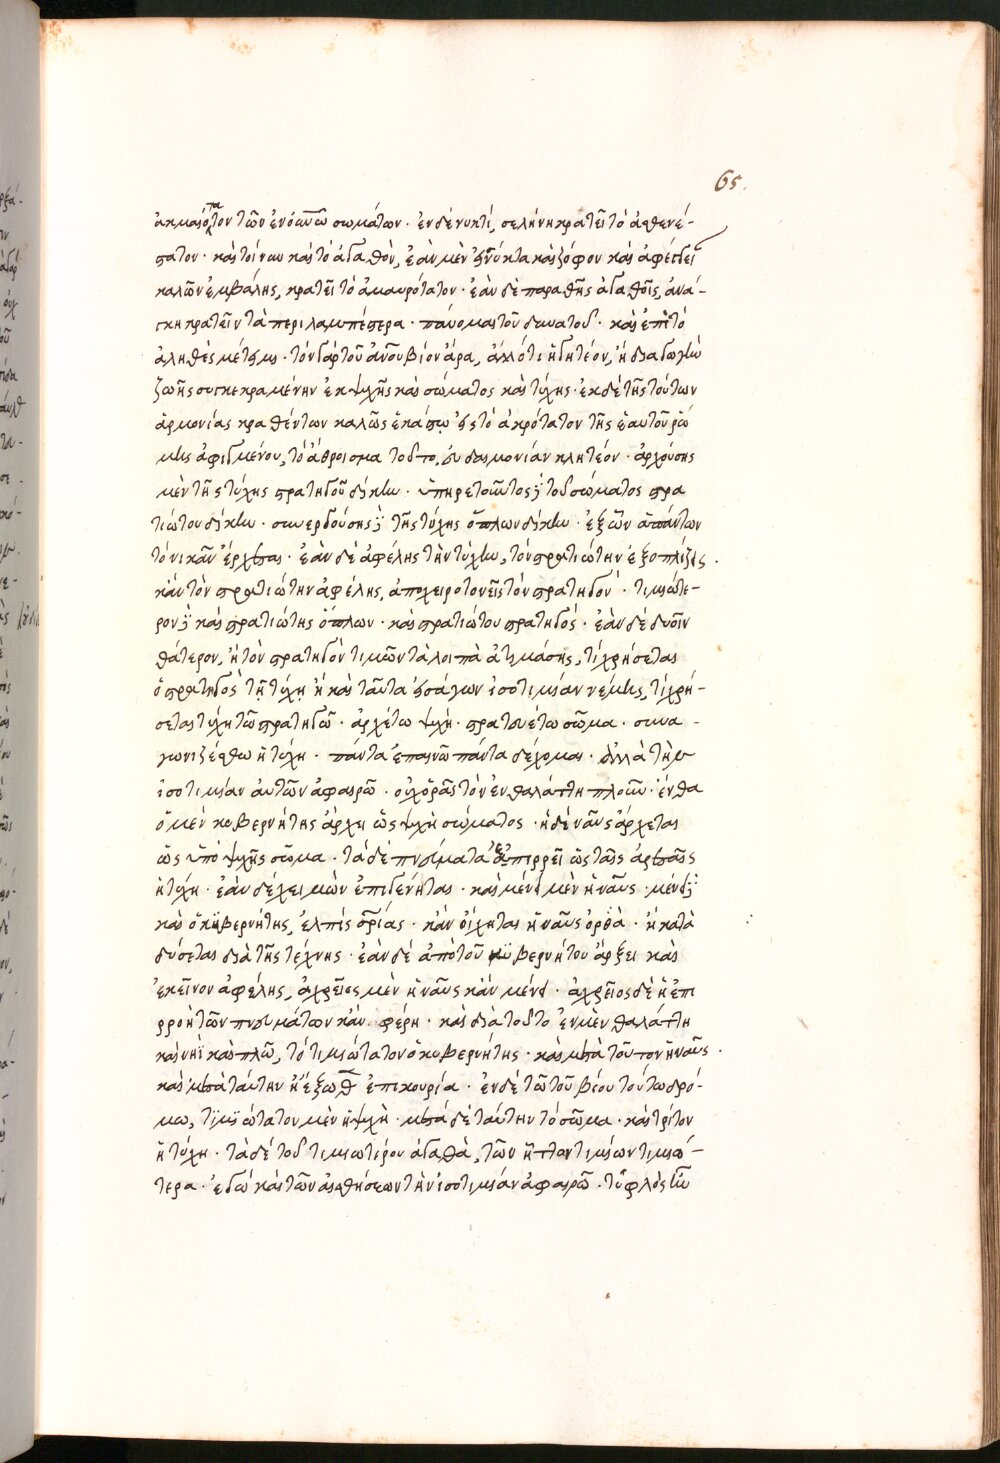 65.
ἀκμαιότατον τῶν ἐν οὐνῶ σωμάτων· ἐν δὲ νυκτὶ, σελήνη κρατεῖ τὸ ἀσθενέ-
στατον· καὶ τοίνυν καὶ τὸ ἀγαθὸν, ἐὰν μὲν εἰς νύκτα καὶ ζόφον καὶ ἀφέγγει
καλῶν ἐμβάλης, κρατεῖ τὸ ἀμαυρότατον· ἐὰν δὲ παραθῆς ἀγαθοῖς, ἀνά-
γκη κρατεῖν τὰ περιλαμπέστερα· παύομαι τοῦ δυνατοῦ· καὶ ἐπὶ τὸ
ἀληθὲς μέτειμι· τὸν γὰρ τοῦ ἀνου βίον ἄρα, ἄλλό τι ἡγητέον, ἢ διαγωγὴν
ζωῆς συγκεκραμένην ἐκ ψυχῆς καὶ σώματος καὶ τύχης· ἐκ δὲ τῆς τούτων
ἁρμονίας κραθέντων καλῶς ἑκάστῳ εἰς τὸ ἀκρότατον τῆς ἑαυτοῦ ῥώ
μης ἀφιγμένου, τὸ ἄθροισμα τοῦτο, εὐδαιμονίαν κλητέον· ἀρχούσης
μὲν τῆς τύχης στρατηγοῦ δίκην· ὑπηρετοῦντος δὲ τοῦ σώματος στρα
τιώτου δίκην· συνεργούσης δὲ τῆς τύχης ὅπλων δίκην· ἐξ ὧν ἁπάντων
τὸ νικᾶν ἔρχεται· ἐὰν δὲ ἀφέλης τὴν τύχην, τὸν στρατιώτην ἐξοπλίζεις.
κἂν τὸν στρατιώτην ἀφέλης, ἀποχειροτονεῖς τὸν στρατηγὸν· τιμιώτε-
ρον δὲ καὶ στρατιώτης ὅπλων· καὶ στρατιώτου στρατηγός· ἐὰν δὲ δυοῖν
θάτερον, ἢ τὸν στρατηγὸν τιμῶν τὰ λοιπὰ ἀτιμάσης, τί χρήσεται
ὁ στρατηγὸς τῇ τύχῃ ἢ καὶ ταῦτα εἰσάγων ἰσοτιμίαν νέμεις, τί χρή-
σεται τύχη τῶ στρατηγῶ· ἀρχέτω ψυχὴ· στρατευέτω σῶμα· συνα-
γωνιζέσθω ἡ τύχη· πάντα ἐπαινῶ πάντα δέχομαι· ἀλλὰ τὴν
ἰσοτιμίαν αὐτῶν ἀφαιρῶ· οὐχ ὁρᾶς τὸν ἐν θαλάττη πλοῦν· ἔνθα
ὁ μὲν κυβερνήτης ἄρχει ὡς ψυχὴ σώματος· ἡ δὲ ναῦς ἄρχεται
ὡς ὑπὸ ψυχῆς σῶμα· τὰ δὲ πνεύματα ἐπιρρεῖ ὡς ταῖς ἀρεταῖς
ἡ τύχη· ἐὰν δὲ χειμὼν ἐπιγένηται· καὶ μένει μὲν ἡ ναῦς· μένει δὲ
καὶ ὁ κυβερνήτης, ἐλπὶς σριας· κἂν οἴχηται ἡ ναῦς ὀρθὰ· ἢ κατὰ
δύσεται διὰ τῆς τέχνης· ἐὰν δὲ ἀπὸ τοῦ κυβερνήτου ἄρξει καὶ
ἐκεῖνον ἀφέλης, ἀχρεῖος μὲν ἡ ναῦς κἂν μένει· ἀχρεῖος δὲ ἡ ἐπι
ρροὴ τῶν πνευμάτων κἂν φέρη· καὶ διὰ τοῦτο ἐν μὲν θαλάττη
καὶ νηῒ καὶ πλῶ, τὸ τιμιώτατον ὁ κυβερνήτης· καὶ μετὰ τοῦτον ἡ ναῦς.
καὶ μετὰ ταύτην ἡ ἔξωθ ἐπικουρία· ἐν δὲ τῶ τοῦ βίου τούτω δρό-
μω, τιμιώτατον μὲν ἡ ψυχὴ· μετὰ δὲ ταύτην τὸ σῶμα· καὶ τρίτον
ἡ τύχη· τὰ δὲ τοῦ τιμιωτέρου ἀγαθὰ, τῶν ἧττον τιμίων τιμιώ-
τερα· ἐγὼ καὶ τῶν αἰσθήσεων τὴν ἰσοτιμίαν ἀφαιρῶ· τυφλὸς ἦν